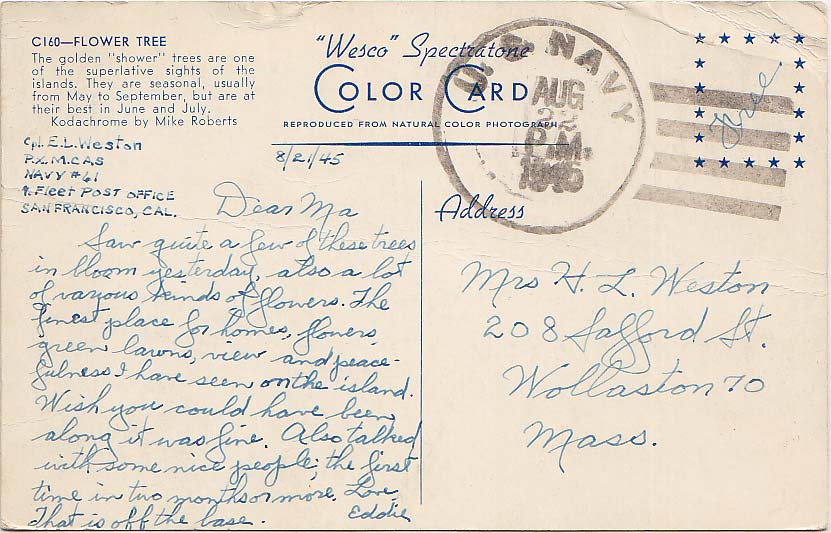 C160—FLOWER TREE
The golden "shower" trees are one
of the superlative sights of the
islands. They are seasonal, usually
from May to September, but are at
their best in June and July.
Kodachrome by Mike Roberts
"Wesco" Spectratone
COLOR CARD
REPRODUCED FROM NATURAL COLOR PHOTOGRAPH
U.S. NAVY
AUG
22
P.M.
1945
Free
Cpl. E. L. Weston
P.X. M.C.A.S
NAVY #61
℅ FLEET POST OFFICE
SAN FRANCISCO, CAL.
8/21/45
Dear Ma
Saw quite a few of these trees
in bloom yesterday, also a lot
of various kinds of flowers. The
finest place for homes, flowers,
green lawns, view and peace-
fulness I have seen on the island.
Wish you could have been
along it was fine. Also talked
with some nice people; the first
time in two months or more. Love,
That is off the base. Eddie
Address
Mrs H. L. Weston
208 Safford St.
Wollaston 70
Mass.